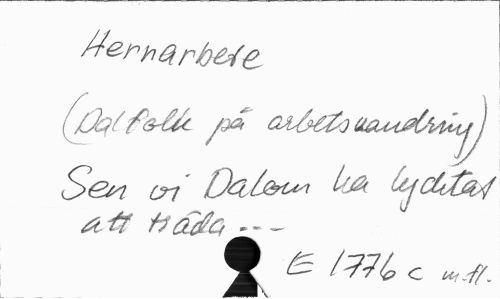 Hernarbete
(Dalfolk på arbetsvandring)
Sen vi Dalom ha lycktas
att tråda ---
E 1776 c m.fl.